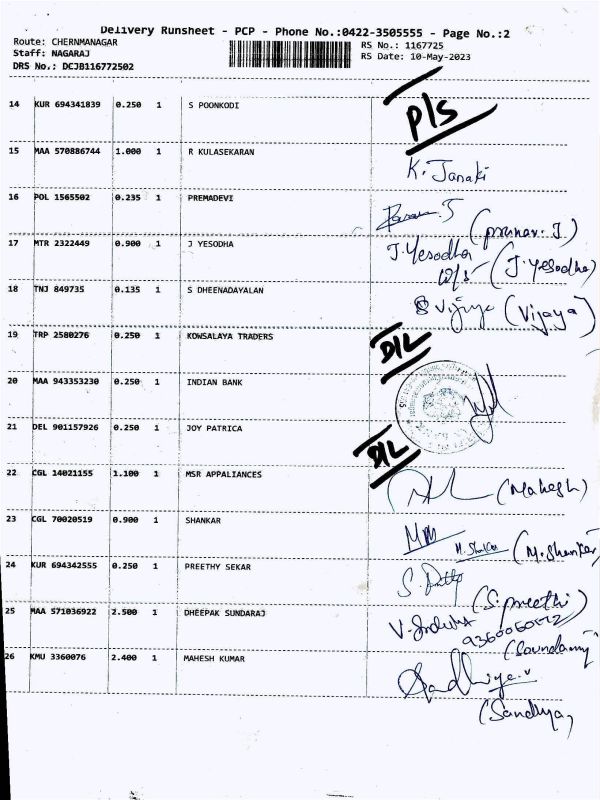 Delivery Runsheet - PCP - Phone No.:0422-3505555 - Page No.:2
Route: CHERNMANAGAR
Staff: NAGARAJ
DRS No.: DCJB116772502
RS No.: 1167725
RS Date: 10-May-2023
14 KUR 694341839 0.250 1 S POONKODI P/S
15 MAA 570886744 1.000 1 R KULASEKARAN K. Janaki
16 POL 1565502 0.235 1 PREMADEVI (pranav. J.)
17 MTR 2322449 0.900 1 J YESODHA J. Yesodha (J. Yesodha)
18 TNJ 849735 0.135 1 S DHEENADAYALAN Vijaya (Vijaya)
19 TRP 2580276 0.250 1 KOWSALAYA TRADERS D/L
20 MAA 943353230 0.250 1 INDIAN BANK
21 DEL 901157926 0.250 1 JOY PATRICA D/L
22 CGL 14021155 1.100 1 MSR APPALIANCES (Mahesh)
23 CGL 70020519 0.900 1 SHANKAR M. Shankar (M. Shanker)
24 KUR 694342555 0.250 1 PREETHY SEKAR (S. preethi)
25 MAA 571036922 2.500 1 DHEEPAK SUNDARAJ
26 KMU 3360076 2.400 1 MAHESH KUMAR Sandhiya
(Sandhya)